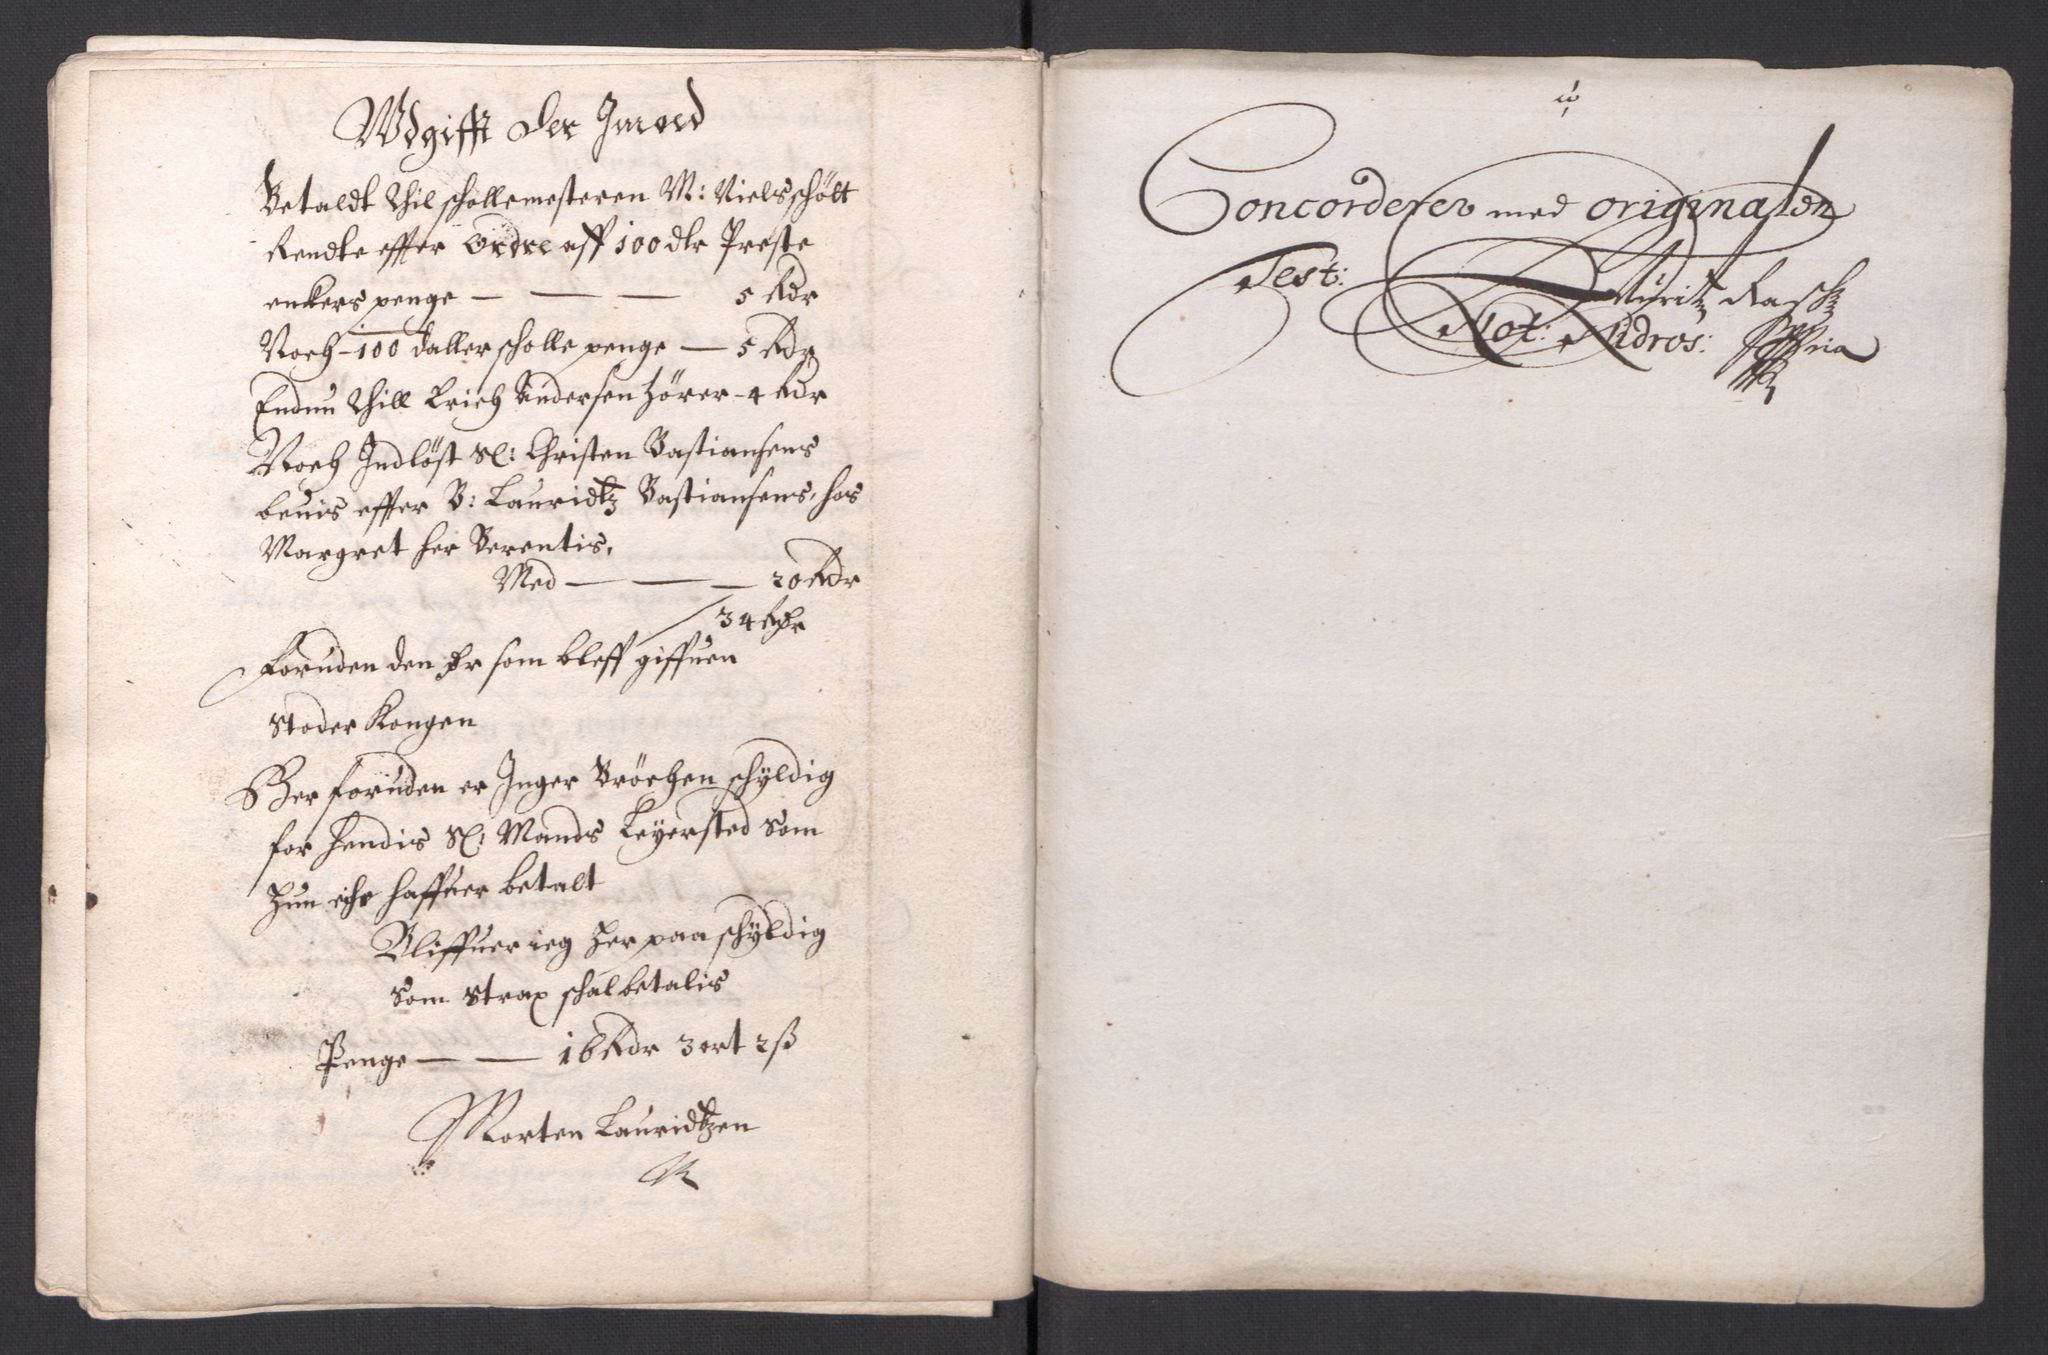 Wdgifft der Imoed
Betaldt thil schollemesteren M: Niels schölt
Rendte effter Ordre aff 100 dlr Preste
enkers penge — — — 5 Rdr
Noch - 100 daller scholle penge — 5 Rdr
Endnu thill Erich Andersen hörer - 4 Rdr
Noch Indlöst Sl: Christen Bastiansens
beuis effter B: Lauridtz Bastiansens, hos
Margret her Berentis,
Med — — — 20 Rdr
34 Rdr
Foruden den som bleff giffuen
Stoder Kongen
Her foruden er Inger Bröchen schÿldig
for hendis Sl: Mands Leÿersted som
hun iche haffuer betalt
Bliffuer ieg her paa schÿldig
som strax schal betalis
Penge — — 16 Rdr 3 ort 2 ß
Morten Lauridtzen
Concorderer med originalen
Test: Mûritz Rasch
Not: Nidros: